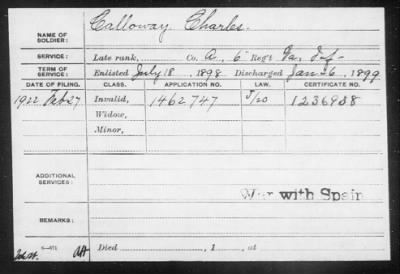 NAME OF SOLDIER: Calloway, Charles.
SERVICE: Late rank, Co. A, 6" Reg't Va. Inf.
TERM OF SERVICE: Enlisted July 18, 1898. Discharged Jan 26, 1899
DATE OF FILING. CLASS. APPLICATION NO. LAW. CERTIFICATE NO.
1922 Feb 27 Invalid, 1462747 J/20 1236938
Widow,
Minor,
ADDITIONAL SERVICES:
War with Spain
REMARKS:
Died , 1 , at